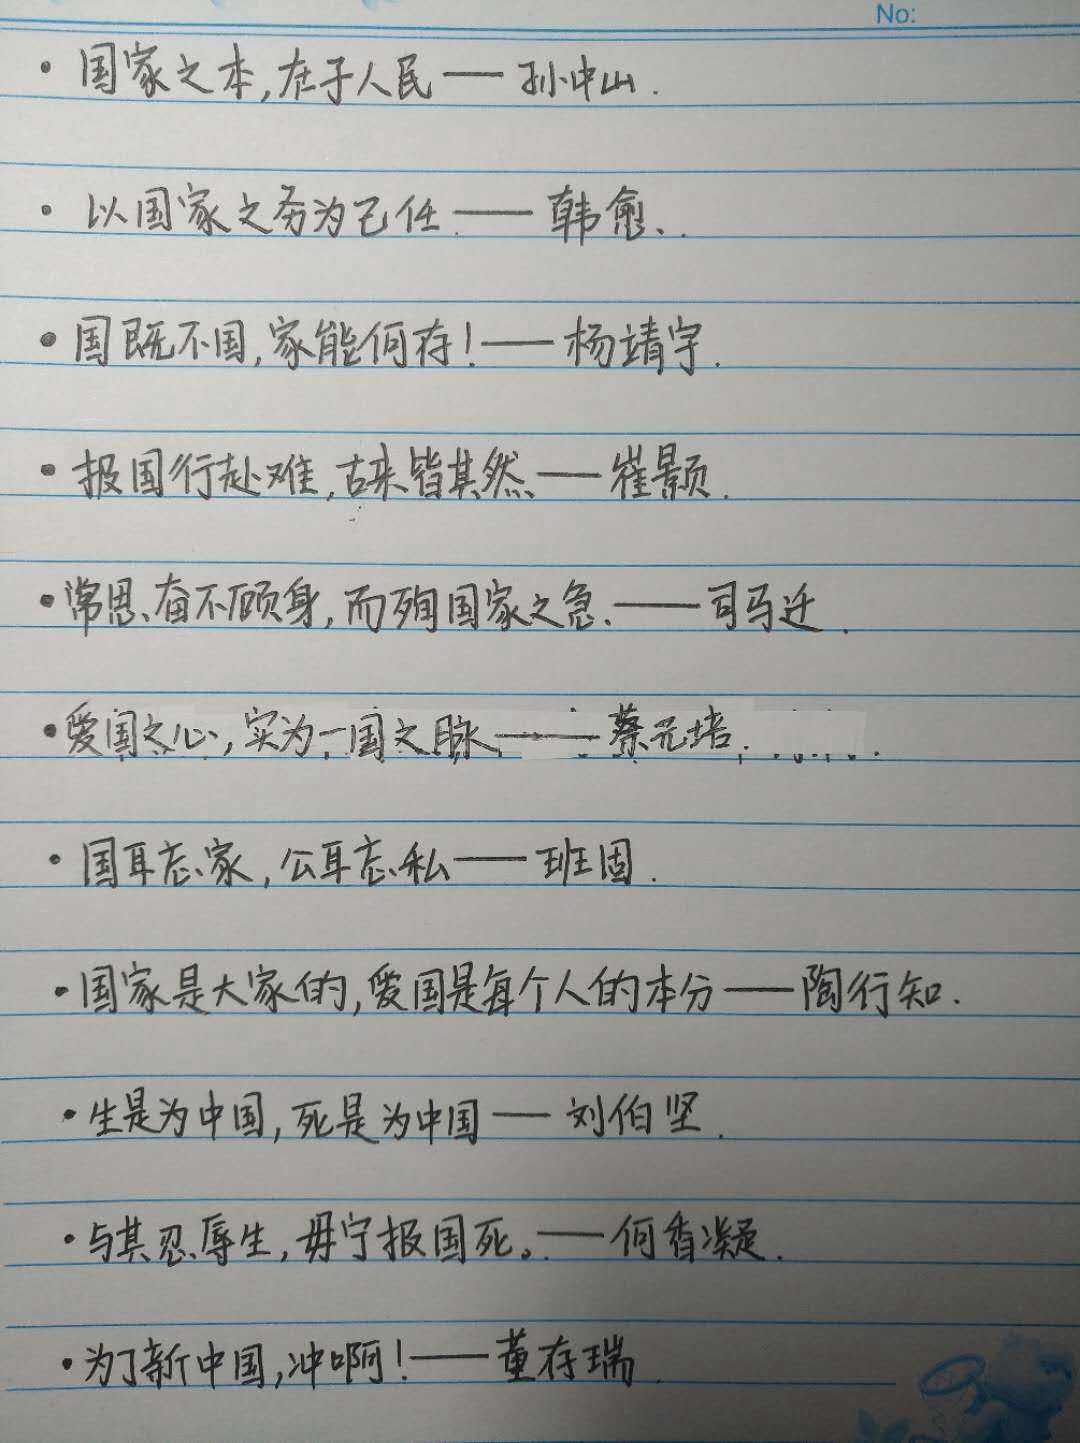 No:
·国家之本,在于人民——孙中山.
·以国家之务为己任.——韩愈.
·国既不国,家能何存!——杨靖宇.
·报国行赴难,古来皆其然——崔颢.
·常思奋不顾身,而殉国家之急.——司马迁.
·爱国之心,实为一国之脉——蔡元培.
·国耳忘家,公耳忘私——班固.
·国家是大家的,爱国是每个人的本分——陶行知.
·生是为中国,死是为中国——刘伯坚.
·与其忍辱生,毋宁报国死。——何香凝.
·为了新中国,冲啊!——董存瑞.